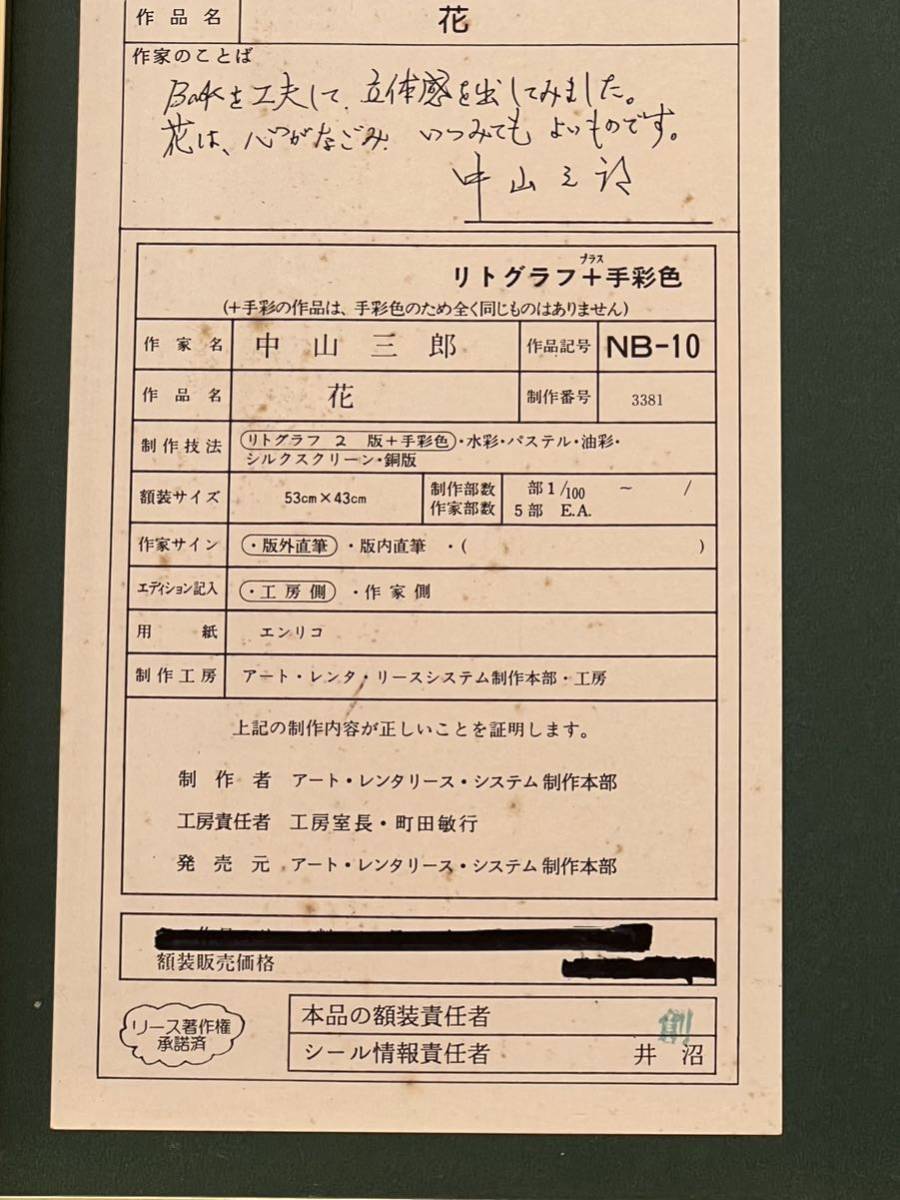 作品名 花
作家のことば
Backを工夫して、立体感を出してみました。
花は、心がなごみ、いつみても よいものです。
中山三郎
プラス
リトグラフ+手彩色
(+手彩の作品は、手彩色のため全く同じものはありません)
作家名 中山三郎 作品記号 NB-10
作品名 花 制作番号 3381
制作技法 リトグラフ 2 版+手彩色・水彩・パステル・油彩・
シルクスクリーン・銅版
額装サイズ 53cm×43cm 制作部数 部1/100 ~ /
作家部数 5部 E.A.
作家サイン ・版外直筆 ・版内直筆 ・( )
エディション記入 ・工房側 ・作家側
用紙 エンリコ
制作工房 アート・レンタ・リースシステム制作本部・工房
上記の制作内容が正しいことを証明します。
制作者 アート・レンタリース・システム制作本部
工房責任者 工房室長・町田敏行
発売元 アート・レンタリース・システム制作本部
額装販売価格
リース著作権
承諾済
本品の額装責任者 創
シール情報責任者 井沼